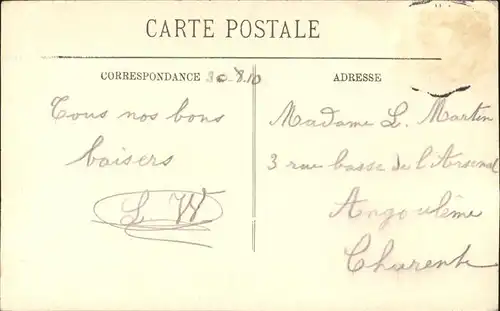 CARTE POSTALE
CORRESPONDANCE 30.8.10
Tous nos bons
baisers
L. W
ADRESSE
Madame L. Martin
3 rue basse de l'Arsenal
Angoulême
Charente